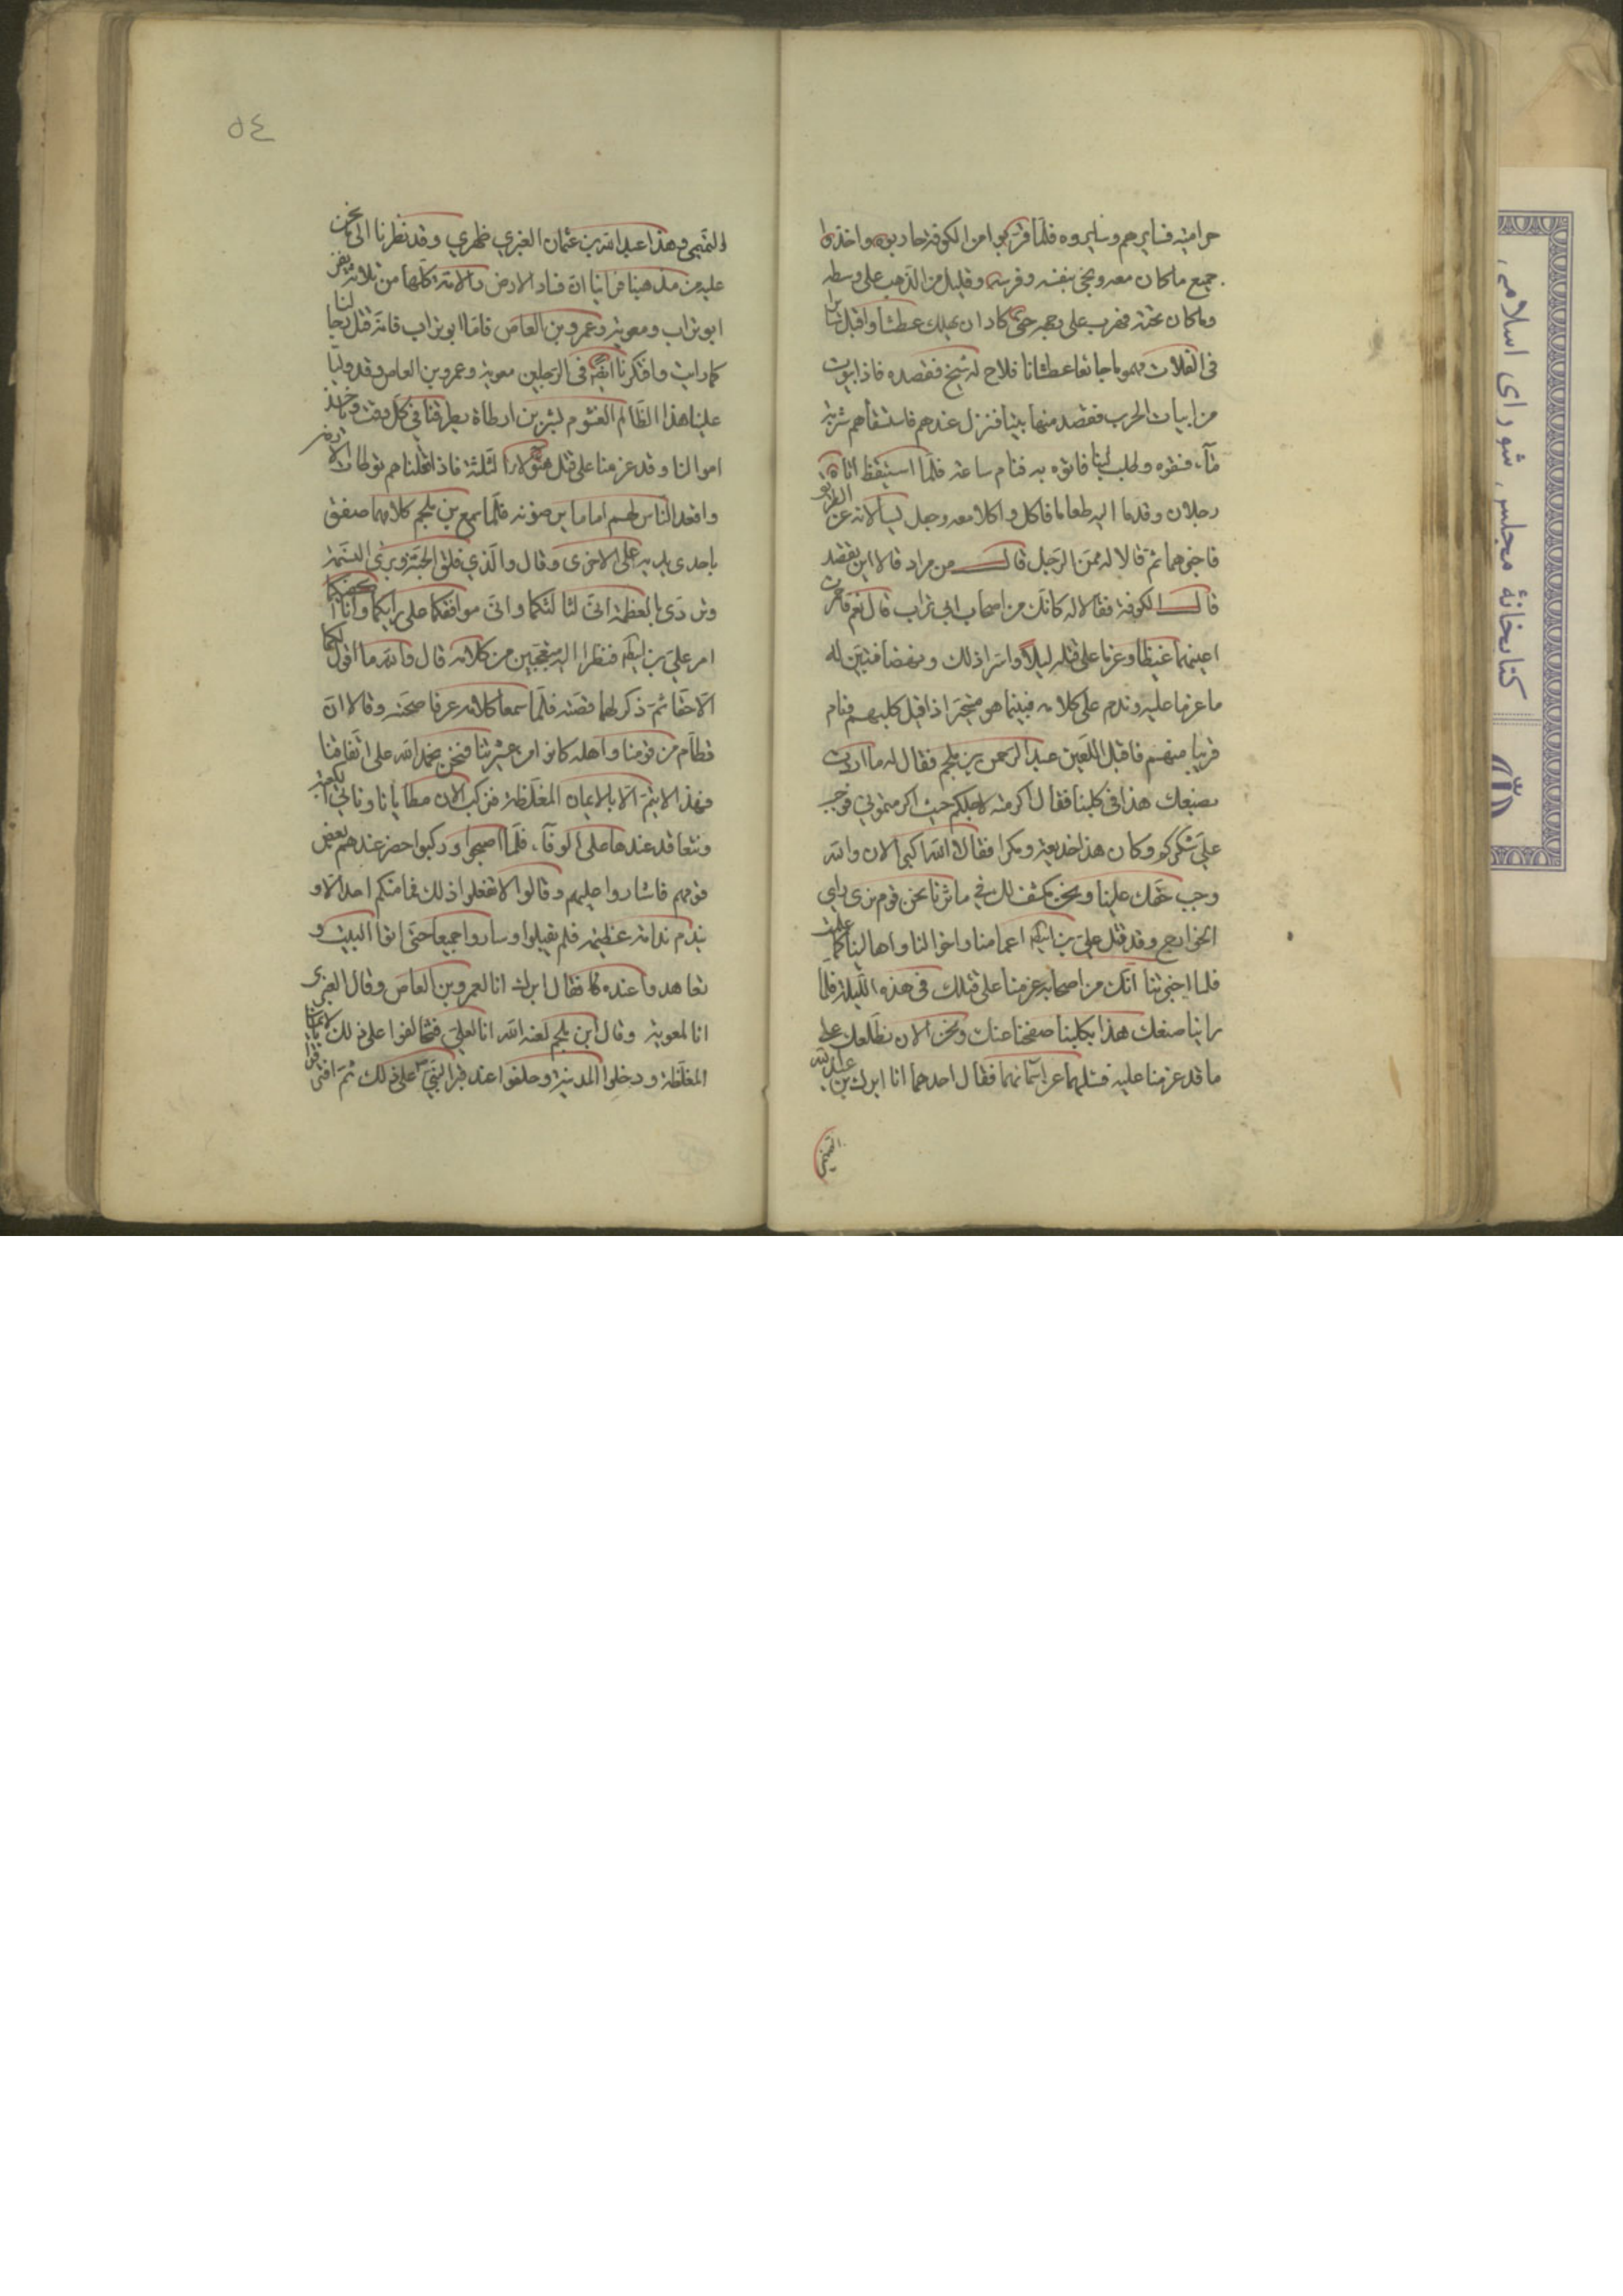 حراميّة فسايرهم وسايروه فلمّا قربوا من الكوفة حاربوه واخذوا
جميع ما كان معه ونجى بنفسه وفرسه وقليل من الذهب على وسطه
وما كان تحته فهرب على وجهه حتى كاد ان يهلك عطشا واقبل
فى الفلات جايعا عطشانا فلاح له شبح فقصده فاذا بيوت
من ابيات الحرب فقصد منها بيتا فنزل عندهم فاستسقاهم شربة
ماء فسقوه وطلب لبنا فاتوه به فنام ساعة فلمّا استيقظ اتاه
رجلان وقدما اليه طعاما فاكل واكلا معه وجعل يسألانه عن الطريق
فاخبرهما ثمّ قالا له ممّن الرّجل قال من مراد قالا اين تقصد
قال الكوفة فقالا له كانّك من اصحاب ابى تراب قال نعم فاحمرت
اعينهما غيظا وعزما على قتله ليلا واسرّا ذلك ونهضا فتبيّن له
ما عزما عليه وندم على كلامه فبينما هو متحيّر اذ اقبل كلبهم فنام
قريبا منهم فاقبل اللّعين عبد الرحمن بن ملجم فقال له ما اردت
بصنيعك هذا فى كلبنا فقال اكرمته لاجلكم حيث اكرمتمونى فوجب
علىّ شكركم وكان هذا خديعة ومكرا فقالا الله اكبر الان والله
وجب حقّك علينا ونحن نكشف لك فى ما ثرنا نحن قوم نرى راى
الخوارج وقد قتل علىّ بن ابيطالب اعمامنا واخوالنا واهالينا كما علمت
فلما اخبرتنا انّك من اصحابه عزمنا على قتلك فى هذه اللّيلة فلما
راينا صنعك هذا بكلبنا صفحنا عنك ونحن الان نطّلعك على
ما قد عزمنا عليه فسئلهما عن اسمائهما فقال احدهما انا ابرك بن عبد الله
التميمى
٥٤
التّميمى وهذا عبد الله بن عثمان العنبرى صهرى وقد نظرنا الى ما نحن
عليه من مذهبنا فراينا انّ فساد الارض والامّة كلّها من ثلاثة نفر
ابو تراب ومعوية وعمرو بن العاص فامّا ابو تراب فانّه قتل رجالنا
كما رايت وافتكرنا ايضا فى الرّجلين معوية وعمرو بن العاص وقد ولّيا
علينا هذا الظّالم الغشوم بشر بن ارطاة يطرقنا فى كلّ وقت وياخذ
اموالنا وقد عزمنا على قتل هؤلاء الثّلثة فاذا قتلناهم توطات الارض
واقعد النّاس لهم اماما يرضونه فلمّا سمع بن ملجم كلامهما صفق
باحدى يديه على الاخرى وقال والّذى فلق الحبّة وبرئ النّسمة
وتردّى بالعظمة انّى لثالثكما وانّى موافقكما على رايكما وانا اكفيكما
امر علىّ بن ابيطالب فنظرا اليه متعجّبين من كلامه قال والله ما اقول لكما
الّا حقّا ثمّ ذكر لهما قصّته فلمّا سمعا كلامه عرفا صحّته وقالا انّ
قطام من قومنا واهلها كانوا من عشيرتنا فنحن نحمد الله على اتّفاقنا
فهذا لا يتمّ الّا بالايمان المغلّظة فنركب الان مطايانا وناتى الكعبة
ونتعاقد عندها على الوفاء فلمّا اصبحوا وركبوا حضر عندهم بعض
قومهم فاشاروا عليهم وقالوا لا تفعلوا ذلك فما منكم احد الّا و
يندم ندامة عظيمة فلم يقبلوا وساروا جميعا حتّى اتوا البيت و
تعاهدوا عنده فقال ابرك انا لعمرو بن العاص وقال العنبرى
انا لمعوية وقال ابن ملجم لعنه الله انا لعلىّ فتحالفوا على ذلك بالايمان
المغلّظة ودخلوا المدينة وحلفوا عند قبر النّبىّ ص على ذلك ثمّ افترقوا
كتابخانهٔ مجلس شوراى اسلامى